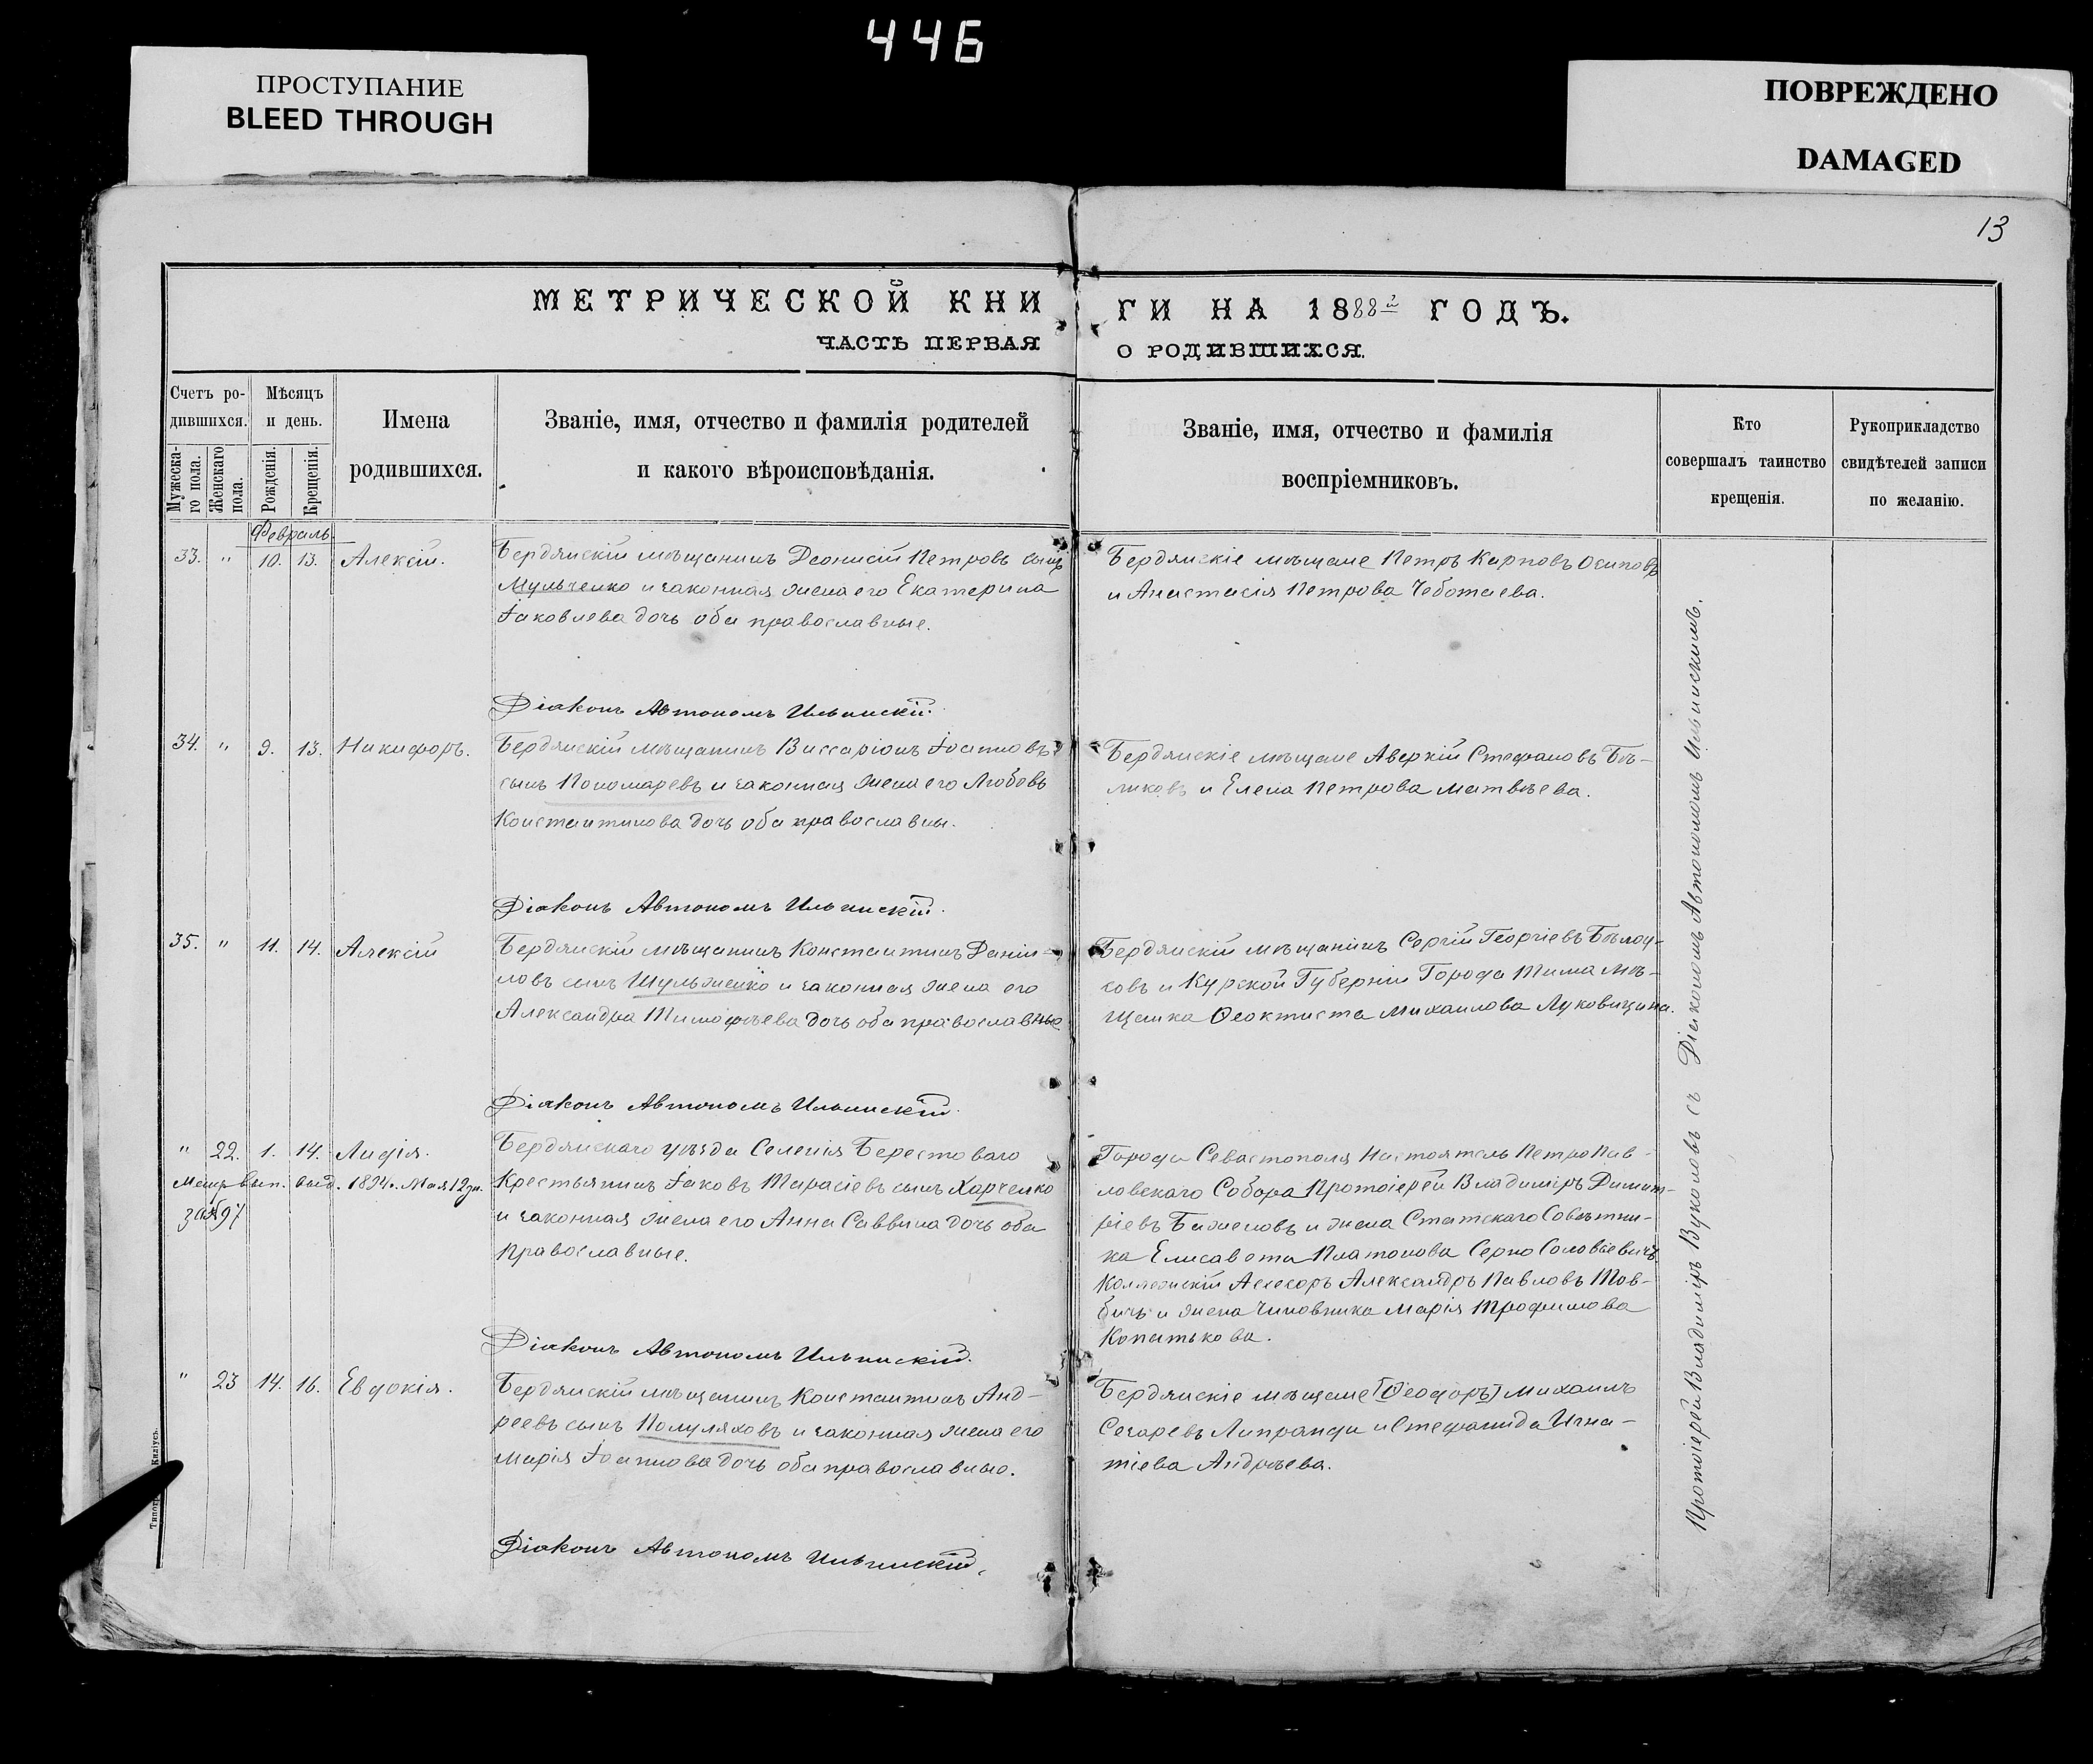 446
ПРОСТУПАНИЕ
BLEED THROUGH
ПОВРЕЖДЕНО
DAMAGED
13
МЕТРИЧЕСКОЙ КНИ
ГИ НА 1888й ГОДЪ.
ЧАСТЬ ПЕРВАЯ
О РОДИВШИХСЯ.
Счетъ ро-
дившихся.
Мѣсяцъ
и день.
Мужеска-
го пола.
Женскаго
пола.
Рожденія.
Крещенія.
Имена
родившихся.
Званіе, имя, отчество и фамилія родителей
и какого вѣроисповѣданія.
Званіе, имя, отчество и фамилія
воспріемниковъ.
Кто
совершалъ таинство
крещенія.
Рукоприкладство
свидѣтелей записи
по желанію.
Февраль.
33. " 10. 13. Алексій.
Бердянскій мѣщанинъ Деонисій Петровъ сынъ
Мульченко и законная жена его Екатерина
Іаковлева дочь оба православные.
Діаконъ Автономъ Ильинскій.
Бердянскіе мѣщане Петръ Карповъ Осиповъ
и Анастасія Петрова Чеботаева.
34. " 9. 13. Никифоръ.
Бердянскій мѣщанинъ Виссаріонъ Іоанновъ
сынъ Пономаревъ и законная жена его Любовь
Константинова дочь оба православны.
Діаконъ Автономъ Ильинскій.
Бердянскіе мѣщане Аверкій Стефановъ Бѣ-
ликовъ и Елена Петрова Матвѣева.
35. " 11. 14. Алексій
Бердянскій мѣщанинъ Константинъ Даніи-
ловъ сынъ Шульженко и законная жена его
Александра Тимофѣева дочь оба православные
Діаконъ Автономъ Ильинскій.
Бердянскій мѣщанинъ Сергій Георгіевъ Бѣлоу-
совъ и Курской Губерніи Города Тима Мѣ-
щанка Ѳеоктиста Михаилова Луковицина.
" 22. 1. 14. Лидія.
Метр. вып. выд. 1894г. Мая 12 дн.
за № 97
Бердянскаго уѣзда Селенія Берестоваго
Крестьянинъ Іаковъ Тарасіевъ сынъ Харченко
и законная жена его Анна Саввина дочь оба
православные.
Діаконъ Автономъ Ильинскій.
Города Севастополя Настоятель Петропав-
ловскаго Собора Протоіерей Владиміръ Димит-
ріевъ Баженовъ и жена Статскаго Совѣтни-
ка Елисавета Платонова Серно Соловіевичъ
Коллежскій Асесоръ Александръ Павловъ Тов-
бичъ и жена Чиновника Марія Трофимова
Копатькова.
" 23 14. 16. Евдокія.
Бердянскій мѣщанинъ Константинъ Анд-
реевъ сынъ Полуляховъ и законная жена его
Марія Іоаннова дочь оба православные.
Діаконъ Автономъ Ильинскій.
Бердянскіе мѣщане [Ѳеодоръ] Михаилъ
Сезаревъ Липранди и Стефанида Игна-
тіева Андреева.
Протоіерей Владиміръ Вуколовъ съ Діакономъ Автономомъ Ильинскимъ.